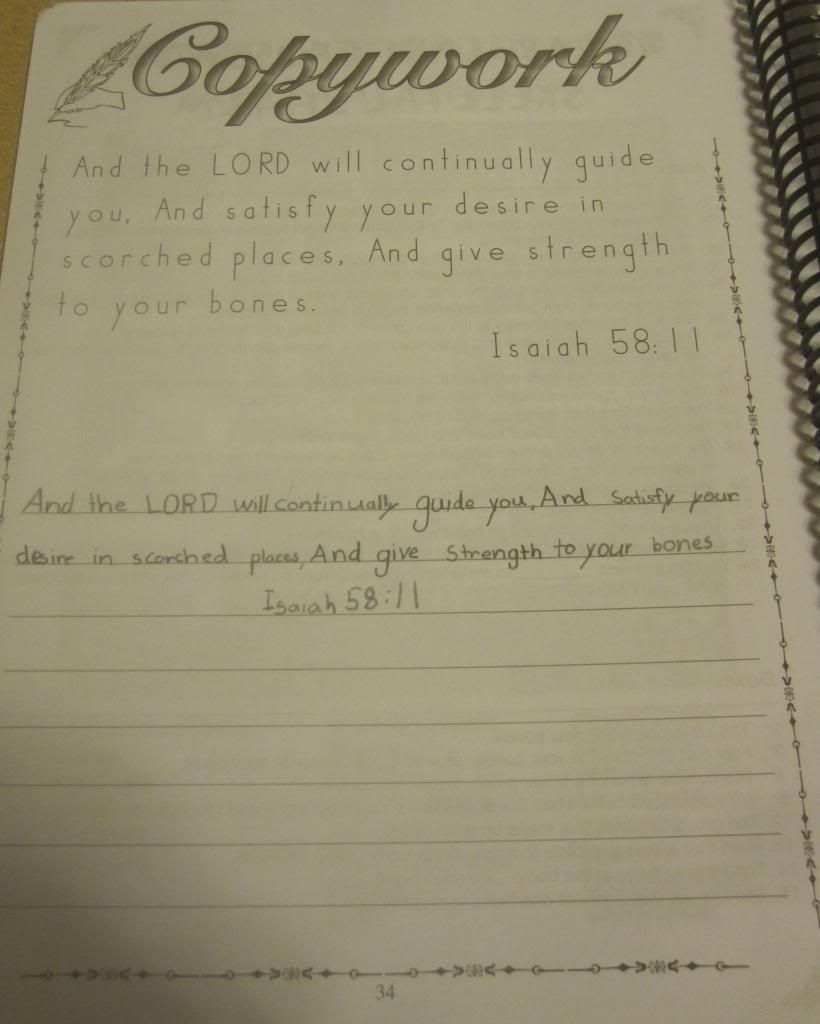 Copywork
And the LORD will continually guide
you, And satisfy your desire in
scorched places, And give strength
to your bones.
Isaiah 58:11
And the LORD will continually guide you, And Satisfy your
desire in scorched places, And give Strength to your bones
Isaiah 58:11
34